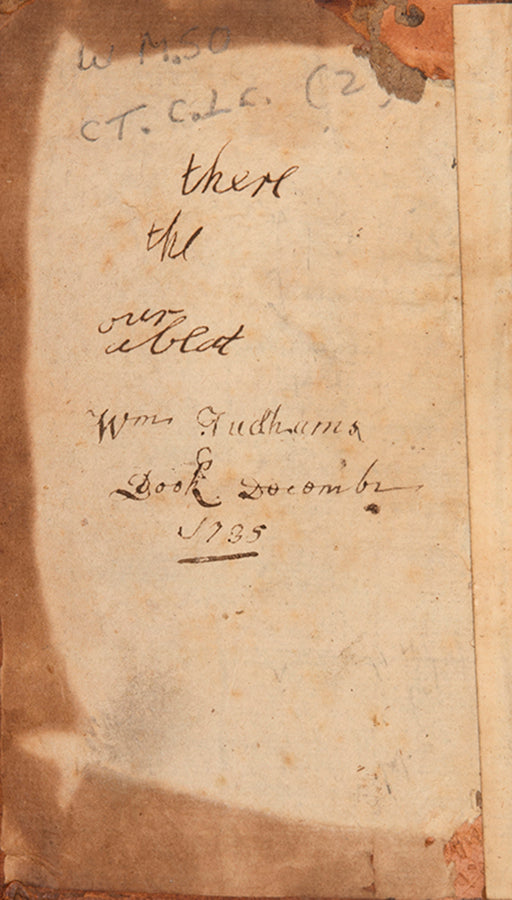 W M.SO
CT. C.L.C. (2,
there
the
our
a blot
Wm Tudhams
Book Decembr
1735